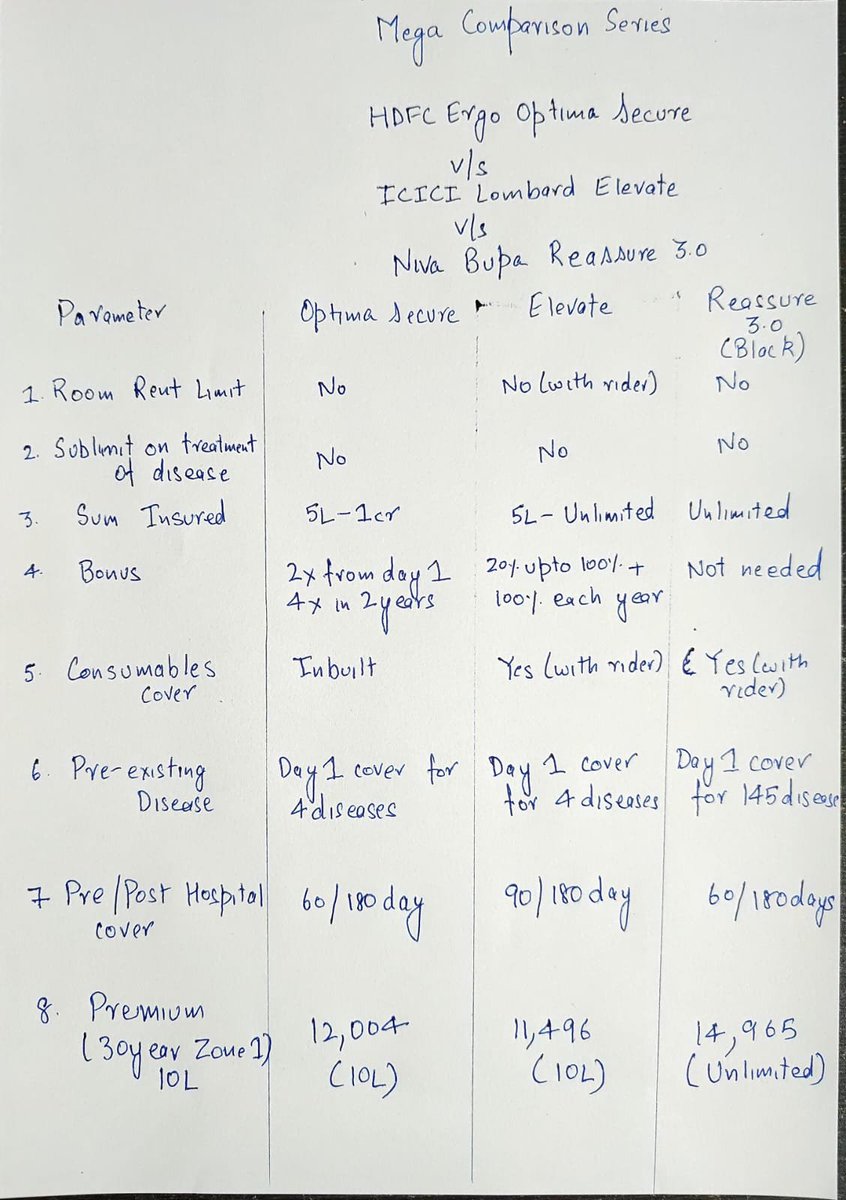 Mega Comparison Series
HDFC Ergo Optima Secure
v/s
ICICI Lombard Elevate
v/s
Niva Bupa Reassure 3.0
Parameter Optima Secure Elevate Reassure
3.0
(Black)
1. Room Rent Limit No No (with rider) No
2. Sublimit on treatment
of disease No No No
3. Sum Insured 5L-1cr 5L- Unlimited Unlimited
4. Bonus 2x from day 1 20% upto 100% + Not needed
4x in 2 years 100% each year
5. Consumables Inbuilt Yes (with rider) Yes (with
cover rider)
6. Pre-existing Day 1 cover for Day 1 cover Day 1 cover
Disease 4 diseases for 4 diseases for 145 disease
7 Pre/Post Hospital 60/180 day 90/180 day 60/180 days
cover
8. Premium 12,004 11,496 14,965
(30year Zone 1) (10L) (10L) (Unlimited)
10L